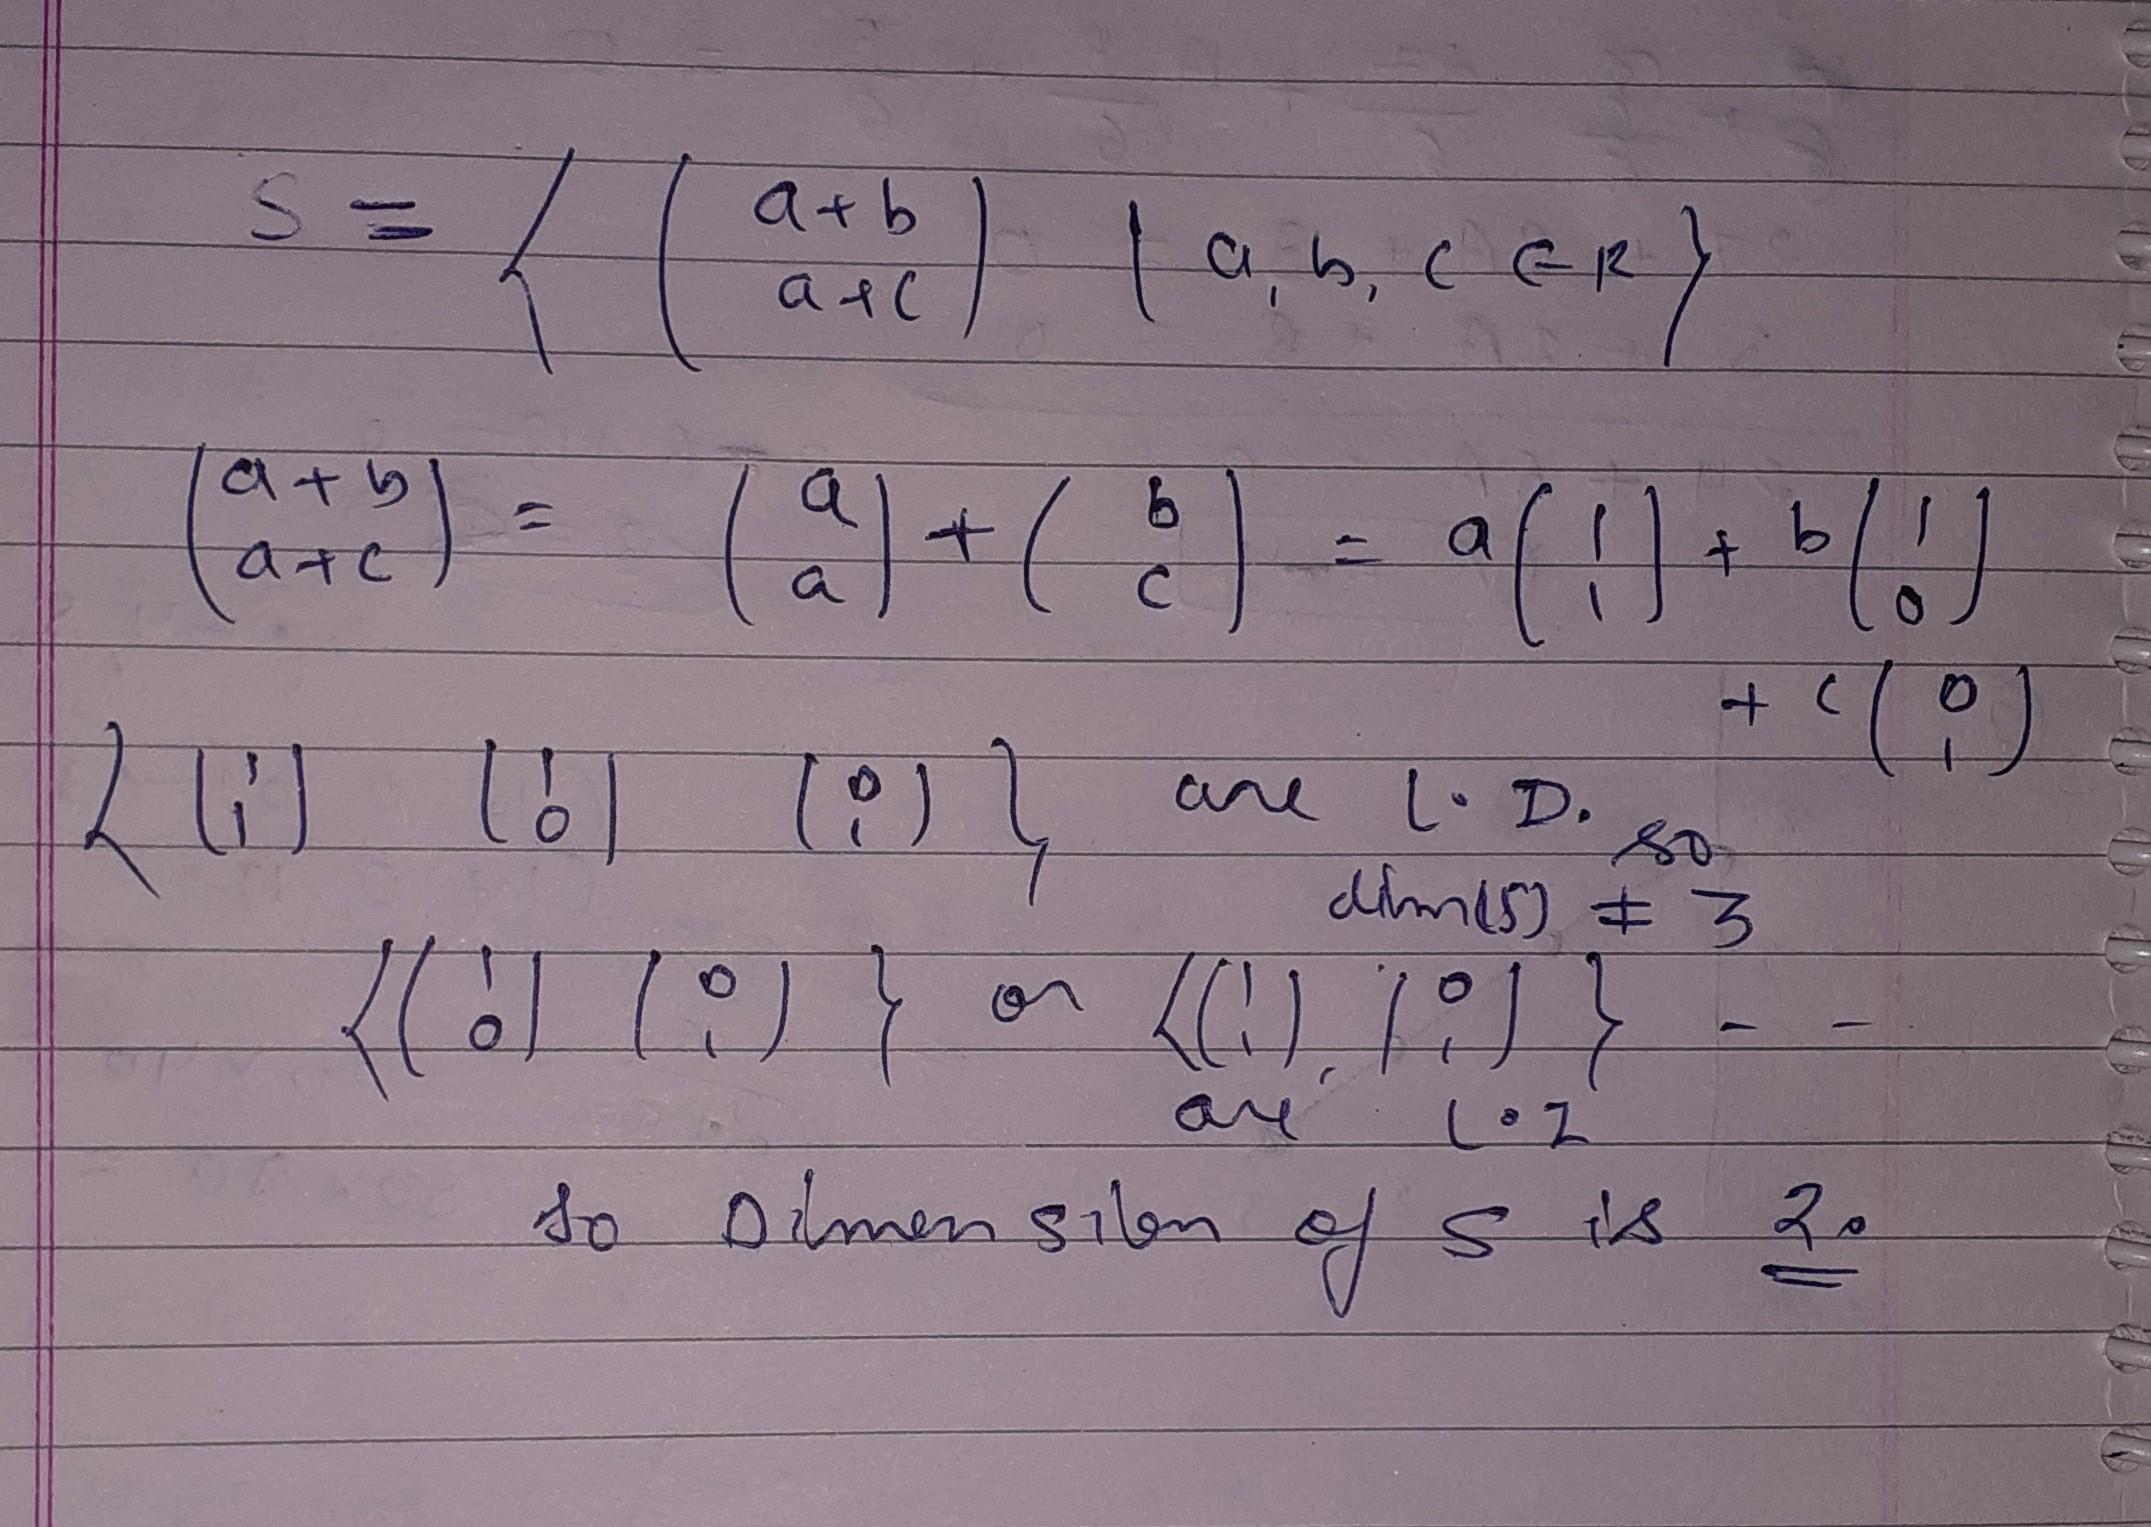 S = { ( a+b a+c ) | a, b, c ∈ R }
( a+b a+c ) = ( a a ) + ( b c ) = a ( 1 1 ) + b ( 1 0 )
+ c ( 0 1 )
{ ( 1 1 ) ( 1 0 ) ( 0 1 ) } are L.D. so
dim(S) ≠ 3
{ ( 1 0 ) ( 0 1 ) } or { ( 1 1 ), ( 0 1 ) } - -
are L.I
So Dimension of S is 2.